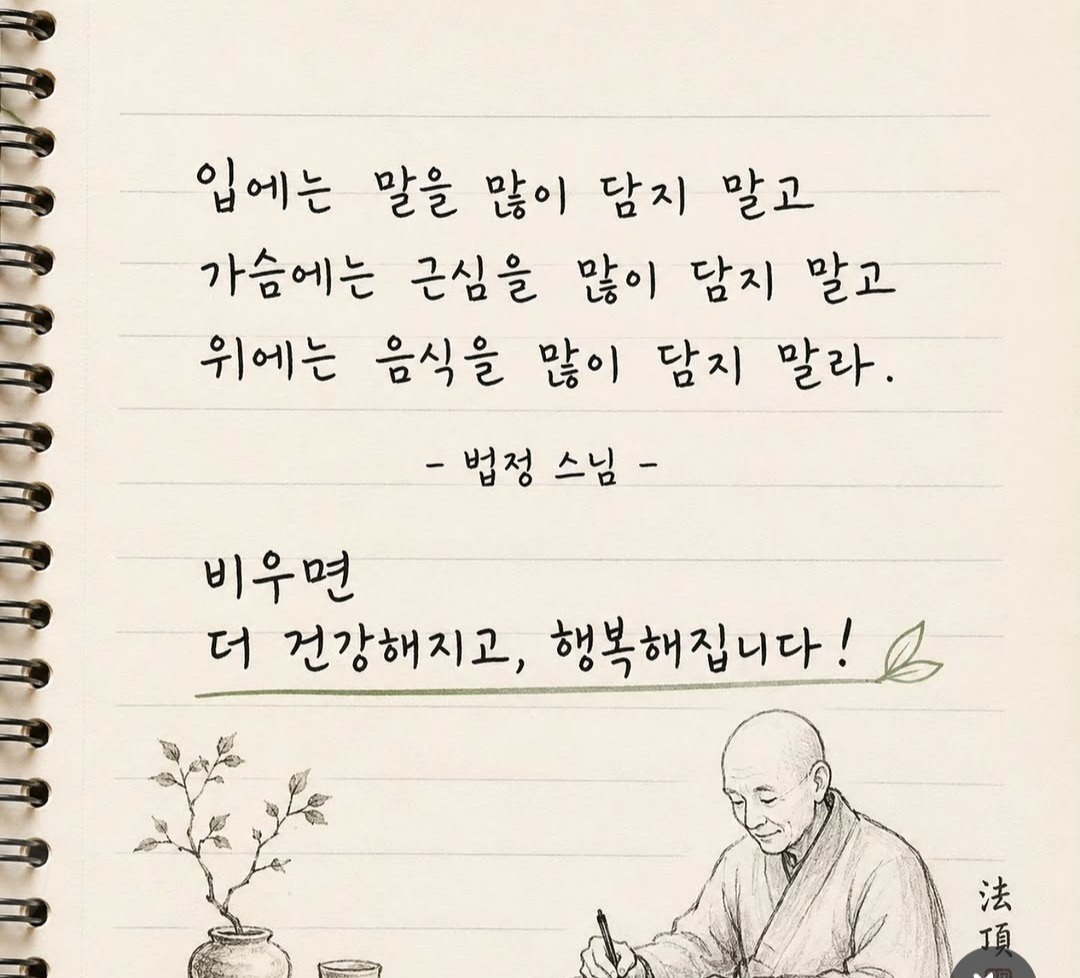 입에는 말을 많이 담지 말고
가슴에는 근심을 많이 담지 말고
위에는 음식을 많이 담지 말라.
- 법정 스님 -
비우면
더 건강해지고, 행복해집니다!
法
頂